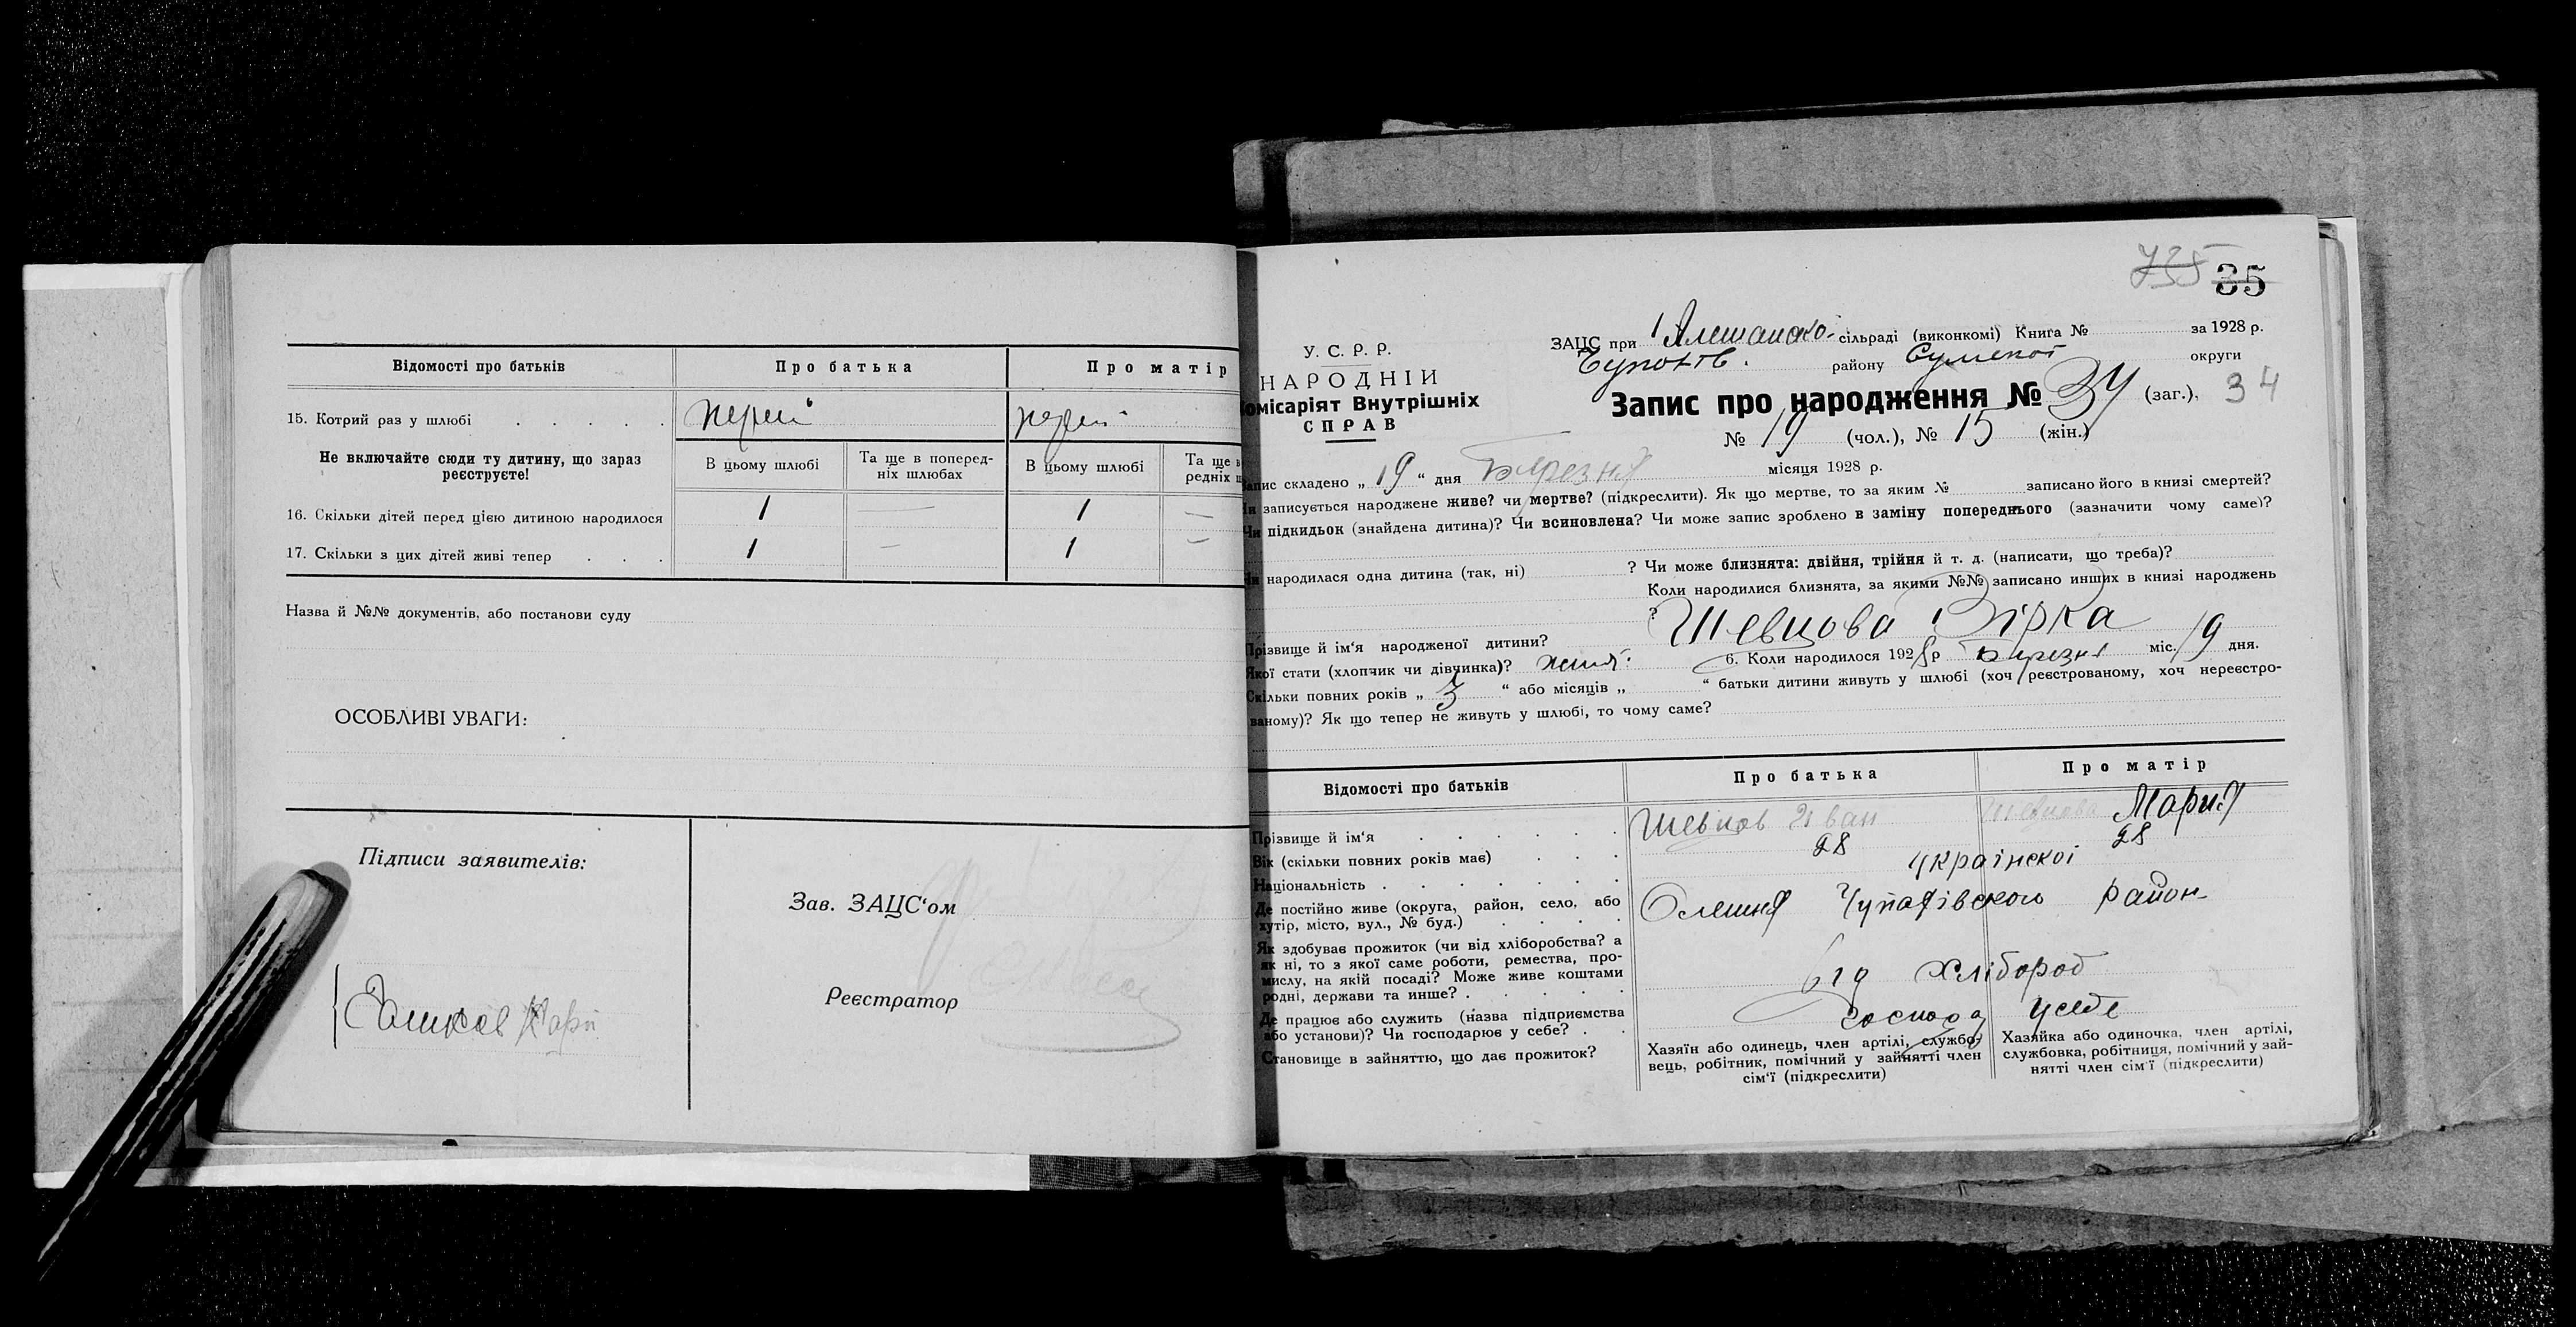 Відомості про батьків Про батька Про матір
15. Котрий раз у шлюбі . . . . .
Не включайте сюди ту дитину, що зараз реєструєте!
В цьому шлюбі Та ще в попередніх шлюбах В цьому шлюбі Та ще в
редніх ш
16. Скільки дітей перед цією дитиною народилося 1 — 1 —
17. Скільки з цих дітей живі тепер . . . 1 — 1 —
Назва й №№ документів, або постанови суду
ОСОБЛИВІ УВАГИ:
Підписи заявителів:
Зав. ЗАЦС'ом
Реєстратор
735 35
У. С. Р. Р.
НАРОДНІЙ
Комісаріят Внутрішніх
СПРАВ
ЗАЦС при сільраді (виконкомі) Книга № за 1928 р.
району Сумської округи
Запис про народження № 34 (заг.), 34
№ 19 (чол.), № 15 (жін.)
Запис складено „ 19 “ дня Березня місяця 1928 р.
Чи записується народжене живе? чи мертве? (підкреслити). Як що мертве, то за яким № записано його в книзі смертей?
Чи підкидьок (знайдена дитина)? Чи всиновлена? Чи може запис зроблено в заміну попереднього (зазначити чому саме)?
Чи народилася одна дитина (так, ні) ? Чи може близнята: двійня, трійня й т. д. (написати, що треба)?
Коли народилися близнята, за якими №№ записано инших в книзі народжень
?
Прізвище й ім'я народженої дитини? Шевцова Вірка
Якої стати (хлопчик чи дівчинка)? жіноч. 6. Коли народилося 1928 р Березня міс. 19 дня.
Скільки повних років „ 3 “ або місяців „ “ батьки дитини живуть у шлюбі (хоч реєстрованому, хоч нереєстро-
ваному)? Як що тепер не живуть у шлюбі, то чому саме?
Відомості про батьків Про батька Про матір
Прізвище й ім'я . . . . . . Шевцов Иван Шевцова Мария
Вік (скільки повних років має) . . . 28 28
Національність . . . . . . . української
Де постійно живе (округа, район, село, або
хутір, місто, вул., № буд.) . . . . Олешня Чупахівського район
Як здобуває прожиток (чи від хліборобства? а
як ні, то з якої саме роботи, ремества, про-
мислу, на якій посаді? Може живе коштами
родні, держави та инше? . . . . . від хлібороб
Де працює або служить (назва підприємства
або установи)? Чи господарює у себе? . . господ у себе
Становище в зайняттю, що дає прожиток?
Хазяїн або одинець, член артілі, службо-
вець, робітник, помічний у зайнятті член
сім'ї (підкреслити)
Хазяйка або одиночка, член артілі,
службовка, робітниця, помічний у зай-
нятті член сім'ї (підкреслити)